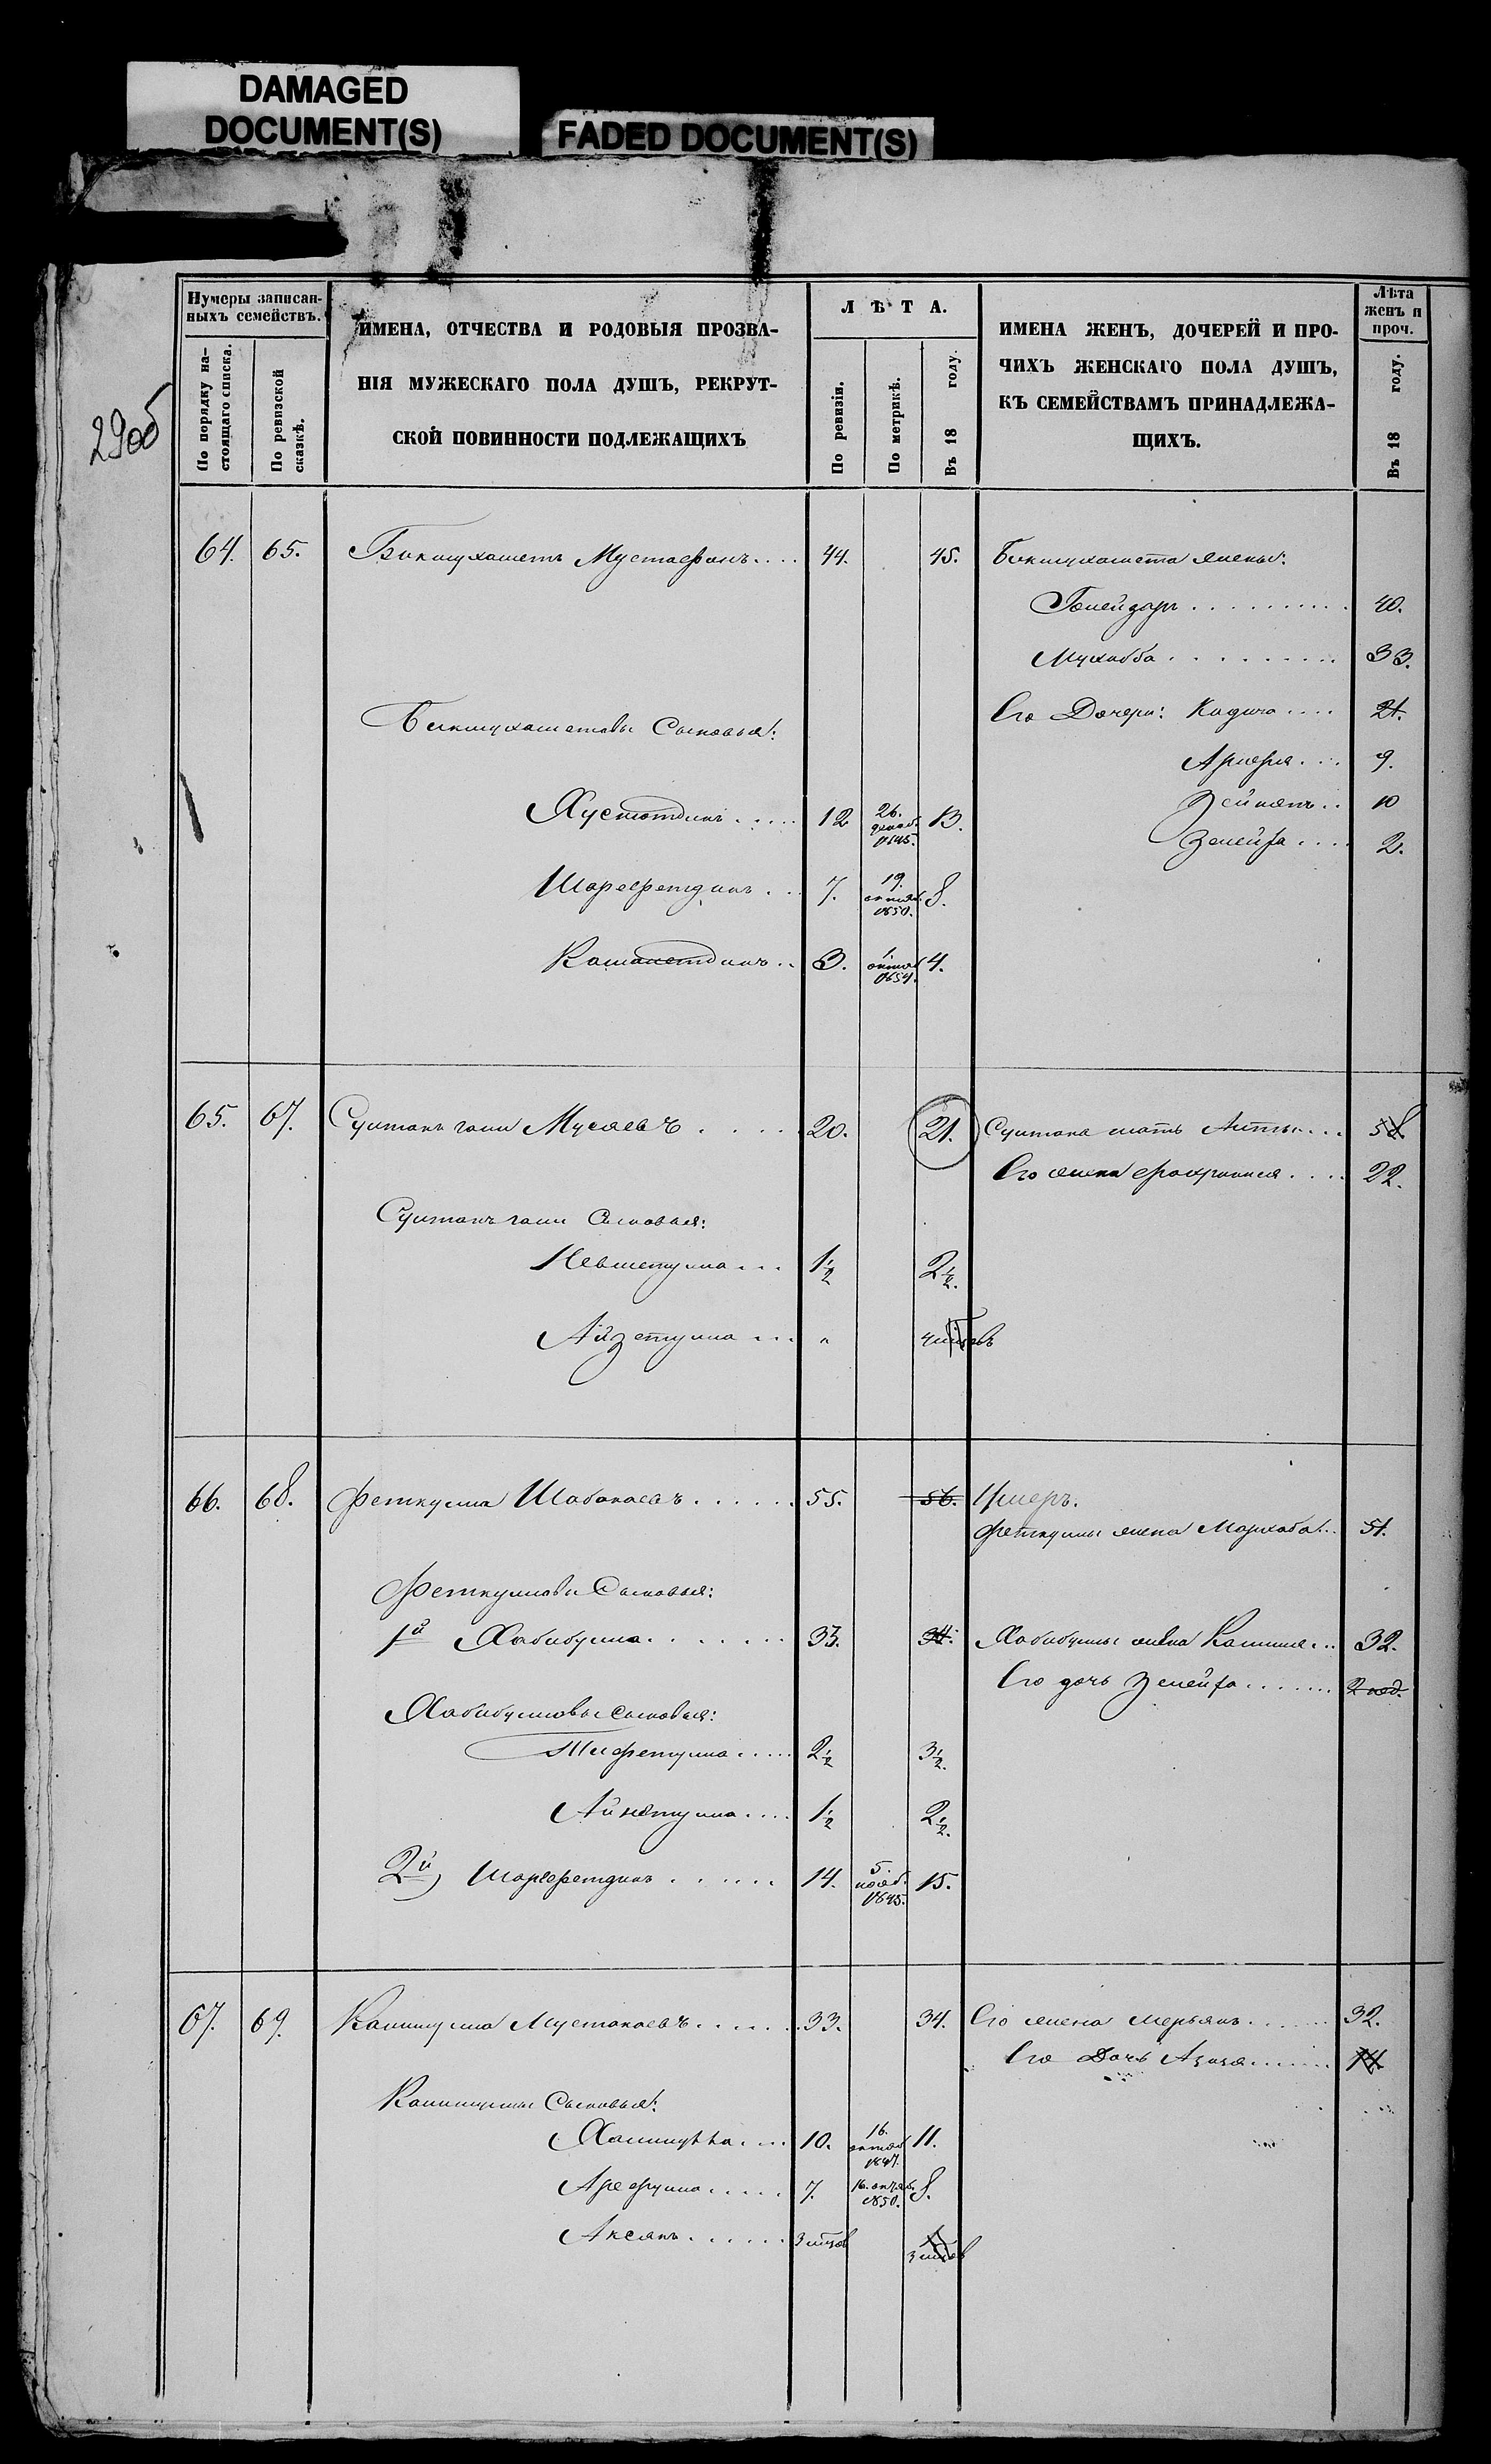 DAMAGED
DOCUMENT(S)
FADED DOCUMENT(S)
29об
Нумеры записан-
ныхъ семействъ.
По порядку на-
стоящаго списка.
По ревизской
сказкѣ.
ИМЕНА, ОТЧЕСТВА И РОДОВЫЯ ПРОЗВА-
НІЯ МУЖЕСКАГО ПОЛА ДУШЪ, РЕКРУТ-
СКОЙ ПОВИННОСТИ ПОДЛЕЖАЩИХЪ
ЛѢТА.
По ревизіи.
По метрикѣ.
Въ 18 году.
ИМЕНА ЖЕНЪ, ДОЧЕРЕЙ И ПРО-
ЧИХЪ ЖЕНСКАГО ПОЛА ДУШЪ,
КЪ СЕМЕЙСТВАМЪ ПРИНАДЛЕЖА-
ЩИХЪ.
Лѣта
женъ и
проч.
Въ 18 году.
64. 65. Бикмухаметъ Мустафинъ.... 44. 45. Бикмухамета жены:
40.
Мухабба......... 33.
Бикмухаметовы Сыновья:
Его Дочери: Кадича.... 21.
9.
Зейнапъ.. 10
Зелейха.... 2.
12 26. декаб. 1845. 13.
Шарефетдинъ... 7. 19. октяб. 1850. 8.
Камалетдинъ.. 3. 1 октяб 1854. 4.
65. 67. Султангали Мусяевъ..... 20. 21. Султана мать... 58
Его жена.... 22.
Султангали Сыновья:
1½ 2½.
Айзетулла... " 4 мѣсяцевъ
66. 68. Феткулла Шабанаевъ...... 55. 56. Умеръ.
Феткуллы жена Мархаба... 51.
Феткулловы Сыновья:
1й Хабибулла....... 33. 34. Хабибуллы жена... 32.
Его дочь Зелейха....... 2 нед.
Хабибулловы сыновья:
2½ 3½.
Айнятулла.... 1½ 2½.
2й) Шарефетдинъ...... 14. 5. нояб. 1845. 15.
67. 69. Калимулла Мустакаевъ...... 33. 34. Его жена Мерьямъ....... 32.
Его Дочь Азиза....... 14
Калимуллы Сыновья:
Халиулла.... 10. 16. октяб 1847. 11.
Арефулла..... 7. 16. октяб. 1850. 8.
Аксянъ...... 3 мѣсяцовъ 3 мѣсяцовъ